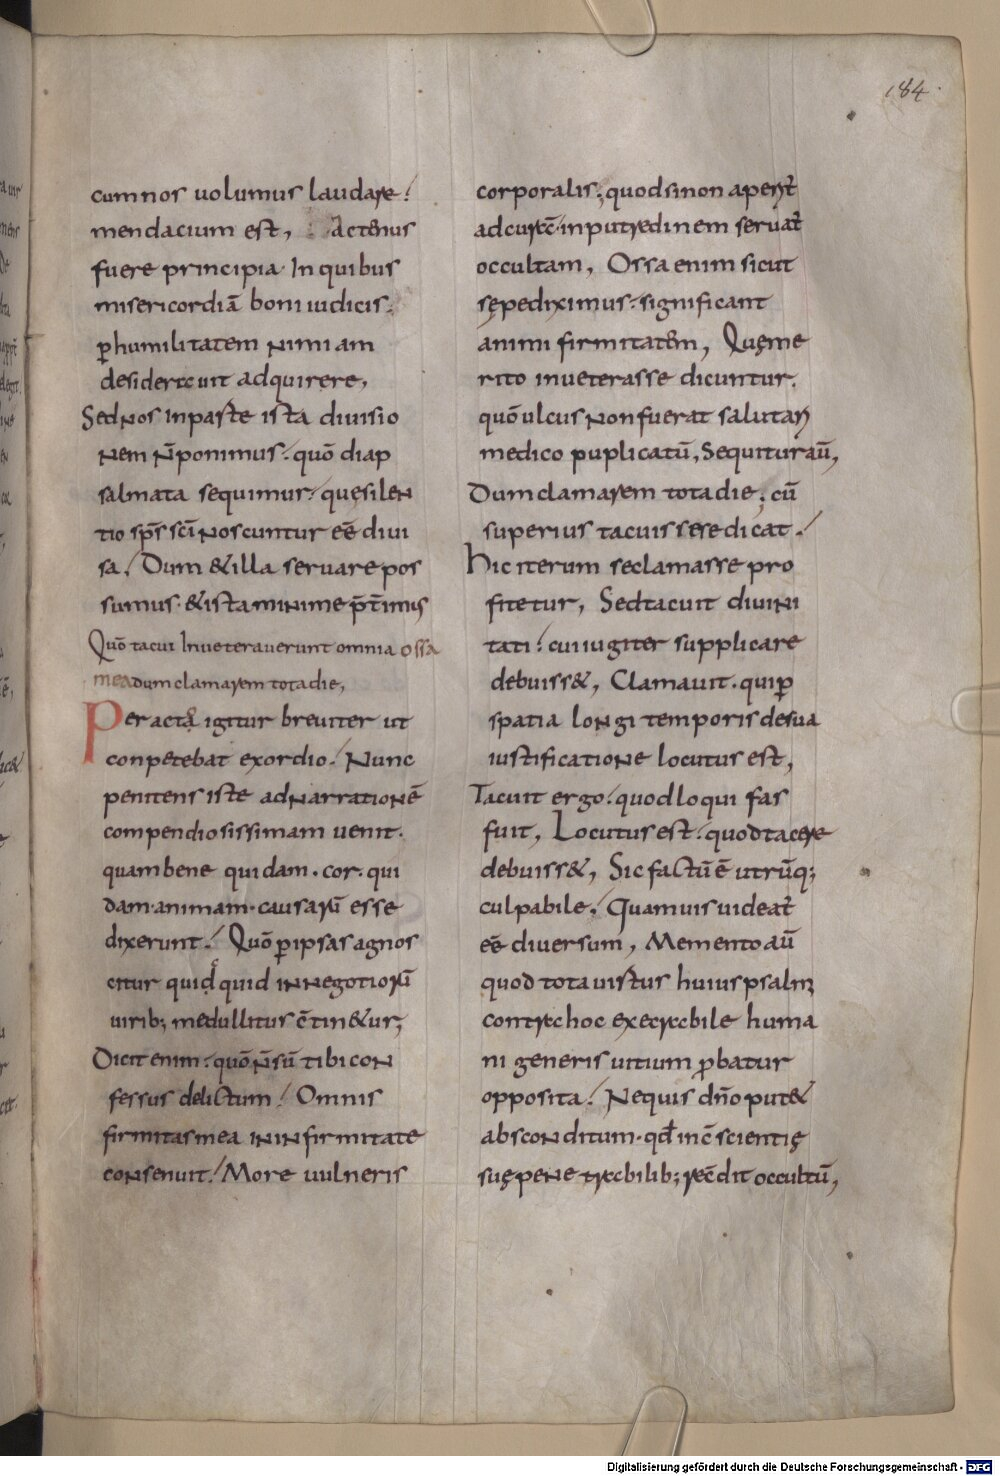 184
cum nos uolumus laudare!
mendacium est, Actenus
fuere principia. In quibus
misericordiā boni iudicis.
ꝑ humilitatem nimiam
desiderauit adquirere,
Sed nos in parte ista diuisio
nem n̄ ponimus. quō diap
salmata sequimur. quę silen
tio sp̄s sc̄i noscuntur eē diui
sa. Dum & illa seruare pos
sumus. & ista minime p̄t̄imus
Quō tacui Inueterauerunt omnia ossa
mea dum clamarem tota die,
Peracta igitur breuiter ut
conpetebat exordio. Nunc
penitens iste ad narrationē
compendiosissimam uenit.
quam bene quidam. cor. qui
dam. animam. causarū esse
dixerunt. Quō ꝑ ipsas agnos
citur quidquid in negotiorū
uirib; medullitus c̄tin&ur;
Dicit enim. quō n̄ sū tibi con
fessus delictum. Omnis
firmitas mea in infirmitate
consenuit. More uulneris
corporalis; quod si non aperit̄
ad curā in putredinem seruat̄
occultam, Ossa enim sicut
sępe diximus. significant
animi firmitatem, Quę me
rito inueterasse dicuntur.
quō ulcus non fuerat salutari
medico puplicatū, Sequitur aū,
Dum clamarem tota die; cū
superius tacuisse se dicat.
hic iterum se clamasse pro
fitetur, Sed tacuit diuini
tati. cui iugiter supplicare
debuiss&, Clamauit. qui ꝑ
spatia longi temporis de sua
iustificatione locutus est,
Tacuit ergo. quod loqui fas
fuit, Locutus est. quod tacere
debuiss&, Sic factū ē utrūq;
culpabile. Quamuis uideat̄
eē diuersum, Memento aū
quod tota uirtus huius psalmi
contra hoc execrabile huma
ni generis uitium ꝓbatur
opposita. Ne quis dn̄o put&
absconditum. qd̄ in c̄scientię
suę penetrabilib; rec̄dit occultū,
Digitalisierung gefördert durch die Deutsche Forschungsgemeinschaft - DFG